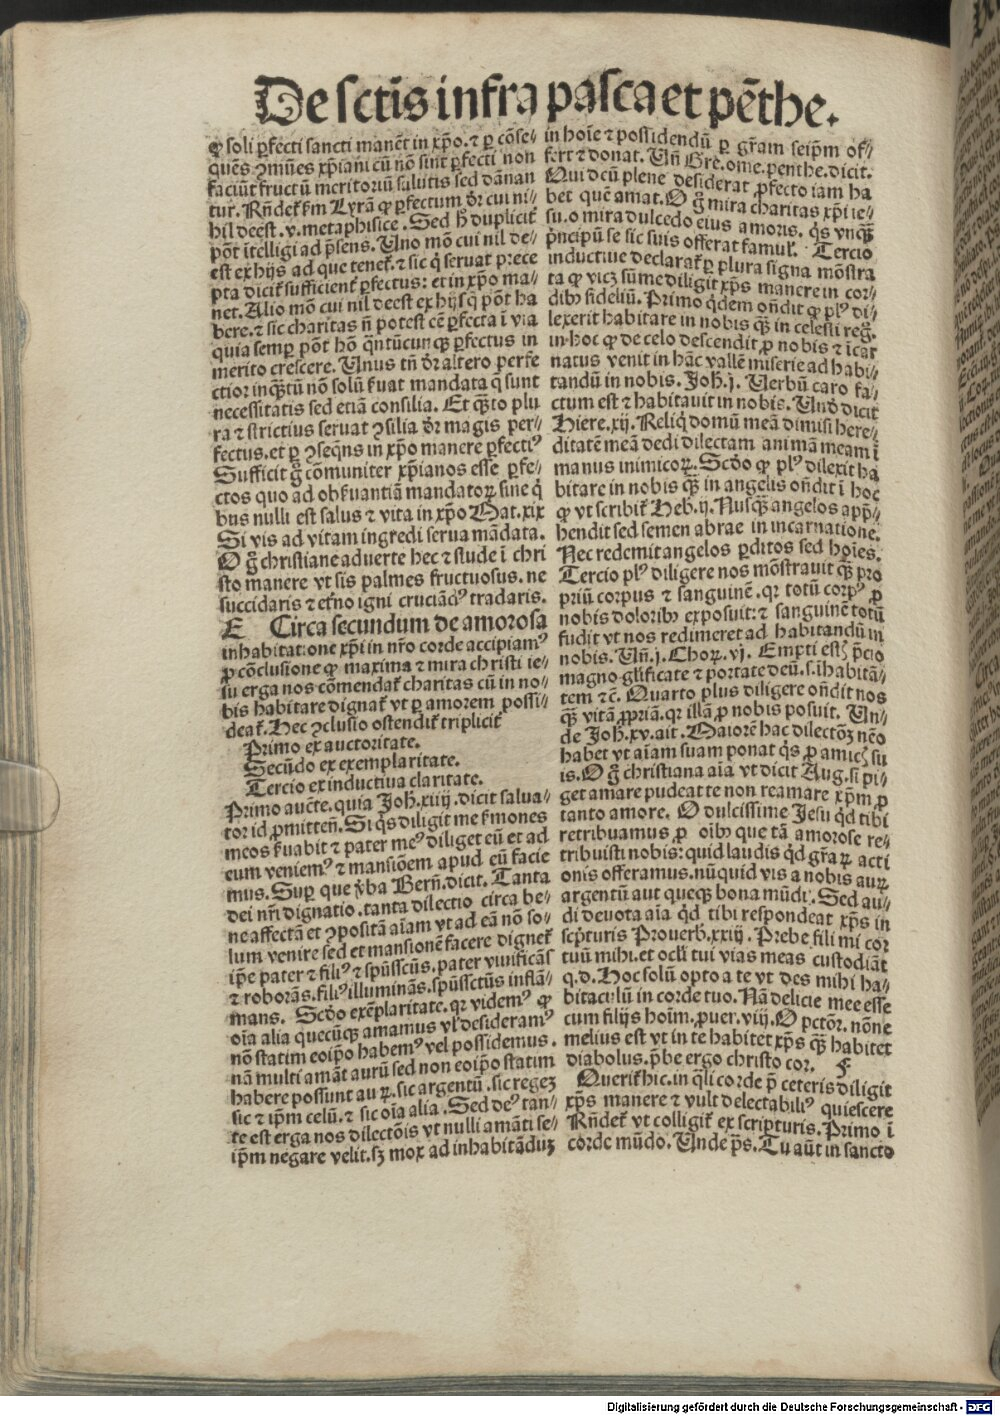 De sctis infra pasca et pēthe.
ꝙ soli ꝑfecti sancti manēt in xp̄o. ⁊ ꝑ cōse⸗
quēs ꝯmūes xp̄iani cū nō sint ꝑfecti non
faciūt fructū meritoriū salutis sed dānan
tur. Rn̄det᷑ ẜm Lyrā ꝙ ꝑfectum dr̄ cui ni⸗
hil deest. v. metaphisice. Sed h̄ duplicit᷑
pōt ītelligi ad p̄sens. Uno mō cui nil de⸗
est ex hijs ad que tenet᷑. ⁊ sic q̇ seruat prece
pta dicit᷑ sufficient᷑ ꝑfectus: et in xp̄o ma⸗
net. Alio mō cui nil deest ex hijs q̄ pōt ha
bere. ⁊ sic charitas n̄ potest eē ꝑfecta ī via
quia semꝑ pōt hō q̄ntūcunqꝫ ꝑfectus in
merito crescere. Unus tn̄ dr̄ altero perfe
ctior inq̄ꝫtū nō solū ẜuat mandata q̄ sunt
necessitatis sed etiā consilia. Et q̄ꝫto plu
ra ⁊ strictius seruat ꝯsilia dr̄ magis per⸗
fectus. et ꝑ ꝯseq̄ns in xp̄o manere ꝑfectiꝰ
Sufficit g̊ cōmuniter xp̄ianos esse ꝑfe⸗
ctos quo ad obẜuantiā mandatoꝝ sine q̇
bus nulli est salus ⁊ vita in xp̄o Mat. xix
Si vis ad vitam ingredi serua mādata.
O g̊ christiane aduerte hec ⁊ stude ī chri
sto manere vt sis palmes fructuosus. ne
succidaris ⁊ et̄no igni cruciādꝰ tradaris.
E Circa secundum de amorosa
inhabitatione xp̄i in nr̄o corde accipiamꝰ
ꝓ cōclusione ꝙ maxima ⁊ mira christi ie⸗
su erga nos cōmendat᷑ charitas cū in no⸗
bis habitare dignat᷑ vt ꝑ amorem possi⸗
deat᷑. Hec ꝯclusio ostendit᷑ triplicit᷑
Primo ex auctoritate.
Secūdo ex exemplaritate.
Tercio ex inductiua claritate.
Primo aucte. quia Joh̄. xiiij. dicit salua⸗
tor id ꝓmitten̄. Si q̇s diligit me ẜmones
meos ẜuabit ⁊ pater meꝰ diliget eū et ad
eum veniemꝰ ⁊ mansiōem apud eū facie
mus. Suꝑ que v̄ba Bern̄. dicit. Tanta
dei nr̄i dignatio. tanta dilectio circa be⸗
ne affectā et ꝯpositā aīam vt ad eā nō so⸗
lum venire sed et mansionē facere dignet᷑
ip̄e pater ⁊ filiꝰ ⁊ sp̄ussctūs. pater viuificās
⁊ roborās. filiꝰ illuminās. sp̄ussctūs inflā⸗
mans. Scd̄o exēplaritate. qr videmꝰ ꝙ
oīa alia quecūqꝫ amamus vl̄ desideramꝰ
nō statim eoip̄o habemꝰ vel possidemus.
nā multi amāt aurū sed non eoip̄o statim
habere possunt auꝝ. sic argentū. sic regeꝫ
sic ⁊ ip̄m celū. ⁊ sic oīa alia. Sed deꝰ tan⸗
te est erga nos dilectōis vt nulli amāti se⸗
ip̄m negare velit. sꝫ mox ad inhabitāduꝫ
in hoīe ⁊ possidendū ꝑ gr̄am seip̄m of⸗
fert ⁊ donat. Un̄ Gre. ome. penthe. dicit.
Qui deū plene desiderat ꝓfecto iam ha
bet quē amat. O g̊ mira charitas xp̄i ie⸗
su. o mira dulcedo eius amoris. q̇s vnq̄ꝫ
p̄ncipū se sic suis offerat famul᷑. Tercio
inductiue declarat᷑ ꝑ plura signa mōstra
ta ꝙ vicꝫ sūme diligit xp̄s manere in cor⸗
dibꝫ fideliū. Primo q̇dem on̄dit ꝙ plꝰ di⸗
lexerit habitare in nobis q̄ꝫ in celesti reg̊.
in hoc ꝙ de celo descendit ꝓ nobis ⁊ īcar
natus venit in hāc vallē miserie ad habi⸗
tandū in nobis. Joh̄. j. Uerbū caro fa⸗
ctum est ⁊ habitauit in nobis. Und̄ dicit
Hiere. xij. Reliq̇ domū meā dimisi here⸗
ditatē meā dedi dilectam animā meam ī
manus inimicoꝝ. Scd̄o ꝙ plꝰ dilexit ha
bitare in nobis q̄ꝫ in angelis on̄dit ī hoc
ꝙ vt scribit᷑ Heb. ij. Nusq̄ꝫ angelos app̄⸗
hendit sed semen abrae in incarnatione.
Nec redemit angelos ꝑditos sed hoīes.
Tercio plꝰ diligere nos mōstrauit q̄ꝫ pro
priū corpus ⁊ sanguinē. qr totū corpꝰ ꝓ
nobis doloribꝫ exposuit: ⁊ sanguinē totū
fudit vt nos redimeret ad habitandū in
nobis. Un̄. j. Choꝝ. vj. Empti estꝫ p̄cio
magno gl̄ificate ⁊ portate deū. s. īhabitā⸗
tem ⁊c̄. Quarto plus diligere on̄dit nos
q̄ꝫ vitā ꝓpriā. qr illā ꝓ nobis posuit. Un⸗
de Joh̄. xv. ait. Maiorē hac dilectōꝫ nēo
habet vt aīam suam ponat q̇s ꝓ amicꝫ su
is. O g̊ christiana aīa vt dicit Aug. si pi⸗
get amare pudeat te non reamare xp̄m ꝓ
tanto amore. O dulcissime Jesu q̇d tibi
retribuamus ꝓ oībꝫ que tā amorose re⸗
tribuisti nobis: quid laudis q̇d gr̄aꝝ acti
onis offeramus. nūquid vis a nobis auꝝ
argentū aut queqꝫ bona mūdi. Sed au⸗
di deuota aīa q̇d tibi respondeat xp̄s in
sc̄pturis Prouerb̄. xxiij. Prebe fili mi cor
tuū mihi. et ocl̄i tui vias meas custodiāt
q. d. Hoc solū opto a te vt des mihi ha⸗
bitaculū in corde tuo. Nā delicie mee esse
cum filijs hoīm. ꝓuer. viij. O pctōr. nōne
melius est vt in te habitet xp̄s q̄ꝫ habitet
diabolus. p̄be ergo christo cor. F
Querit᷑ hic. in q̄li corde p̄ ceteris diligit
xp̄s manere ⁊ vult delectabiliꝰ quiescere
Rn̄det᷑ vt colligit᷑ ex scripturis. Primo ī
corde mūdo. Unde p̄s. Tu aūt in sancto
Digitalisierung gefördert durch die Deutsche Forschungsgemeinschaft - DFG